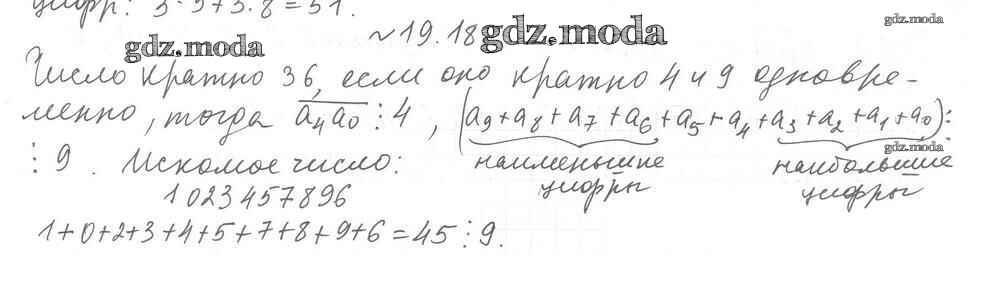 цифр: 3·9+3·8=51.
gdz.moda
gdz.moda
gdz.moda
~19.18
Число кратно 36, если оно кратно 4 и 9 одновре-
менно, тогда a₄a₀ ⋮ 4, (a₉+a₈+a₇+a₆+a₅+a₄+a₃+a₂+a₁+a₀) ⋮
gdz.moda
⋮ 9. Искомое число: наименьшие цифры наибольшие цифры
1023457896
1+0+2+3+4+5+7+8+9+6=45 ⋮ 9.